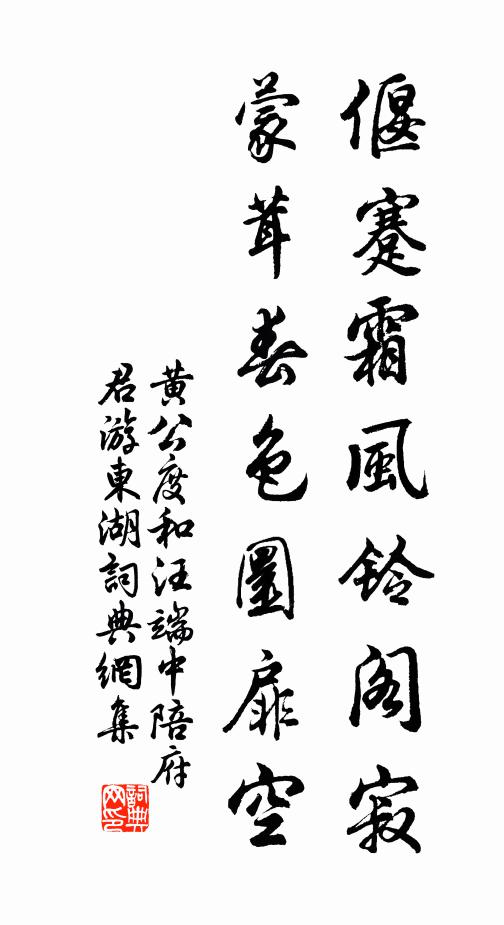 偃蹇霜風鈴阁寂
蒙茸春色圜扉空
黄公度和汪端中陪府
君游東湖詞典網集
詞典网印